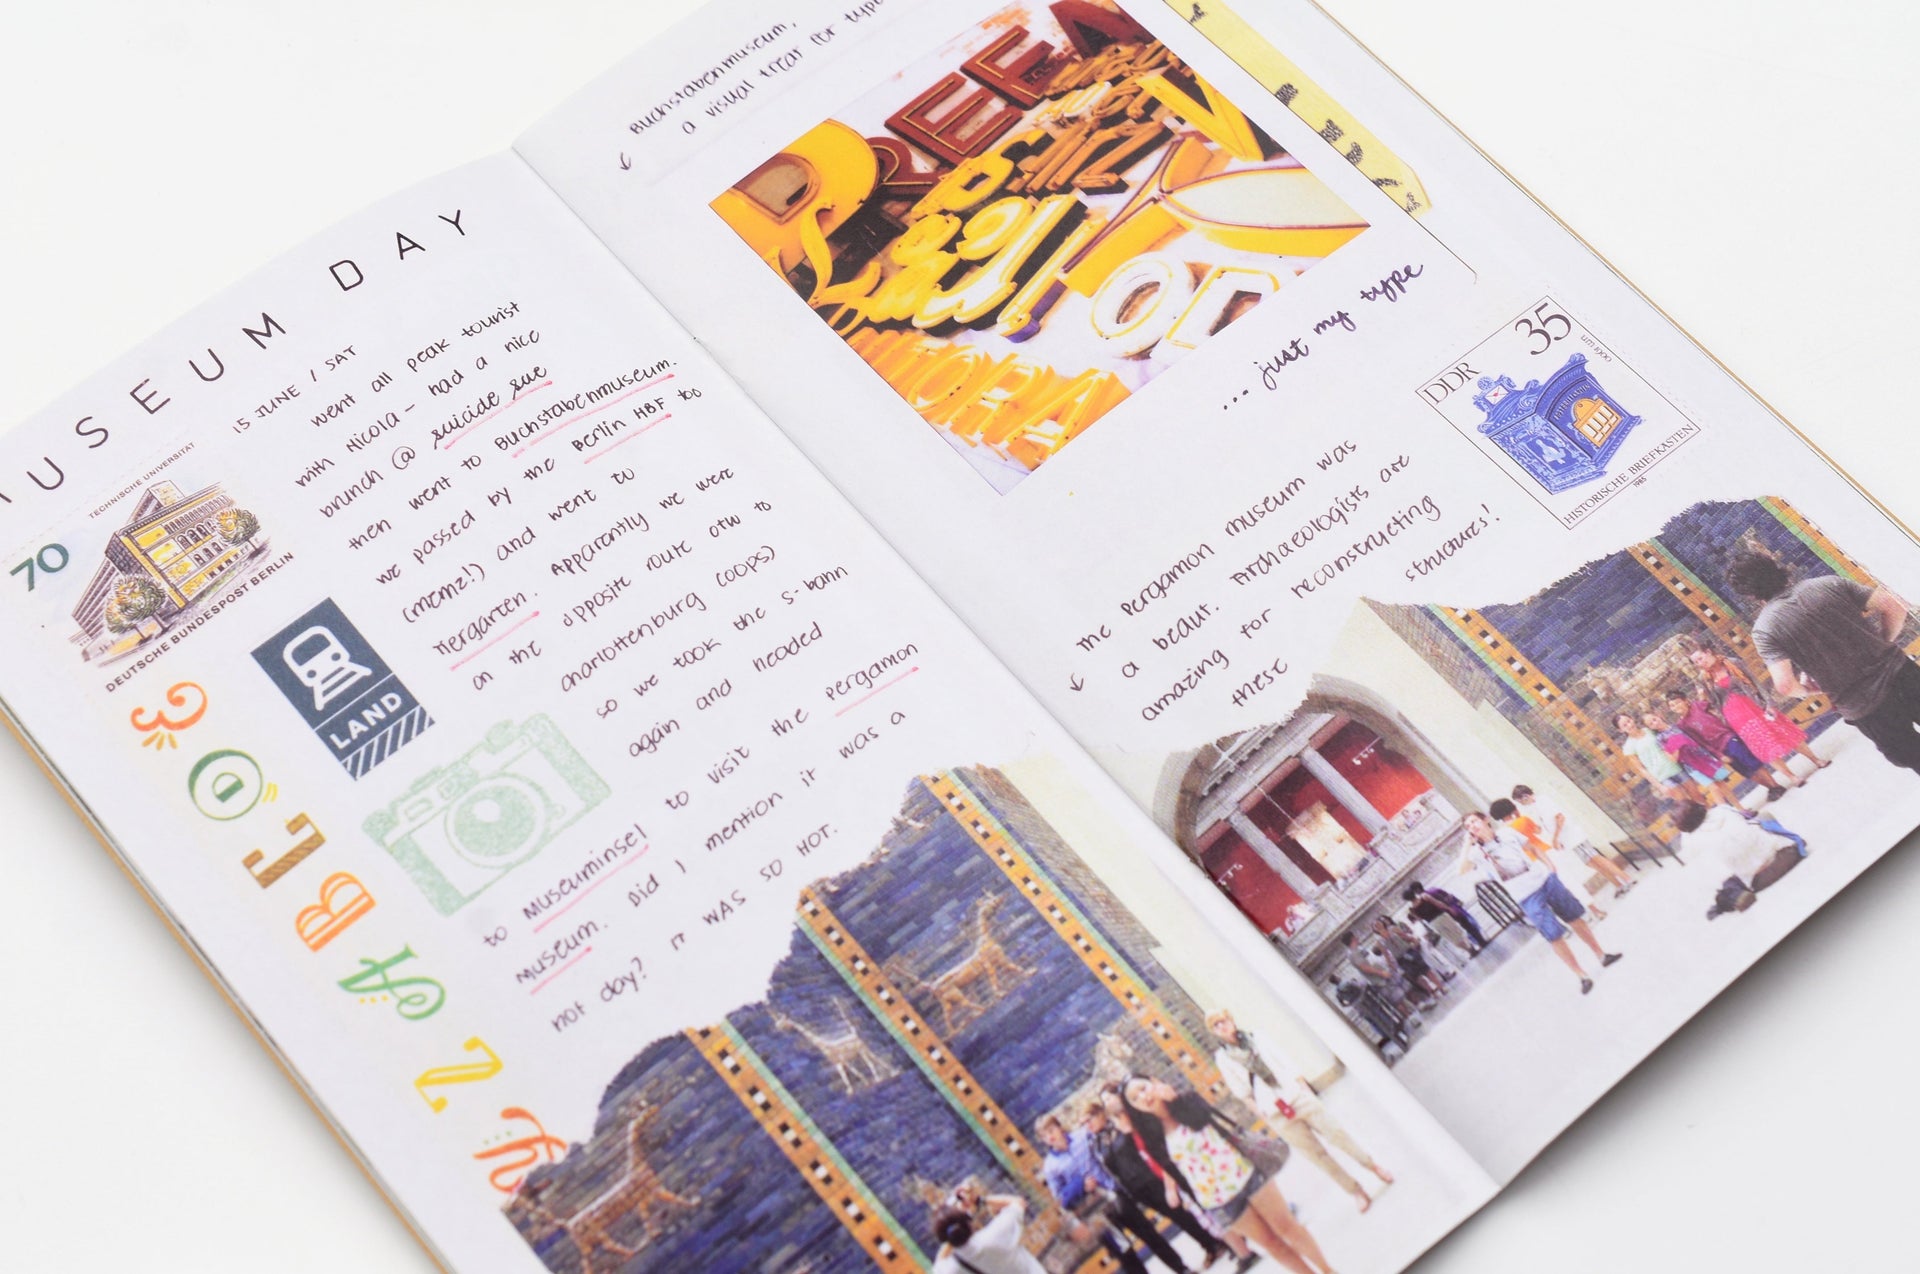 MUSEUM DAY
15 JUNE / SAT
went all peak tourist
with Nicola – had a nice
brunch @ suicide sue
then went to Buchstabenmuseum.
we passed by the Berlin HBF too
(memz!) and went to
Tiergarten. Apparently we were
on the opposite route otw to
charlottenburg (oops)
so we took the s-bahn
again and headed
to Museuminsel to visit the pergamon
museum. Did I mention it was a
hot day? IT WAS SO HOT.
TECHNISCHE UNIVERSITÄT
70
DEUTSCHE BUNDESPOST BERLIN
LAND
Buchstabenmuseum,
a visual treat for type
... just my type
DDR
35
um 1900
HISTORISCHE BRIEFKASTEN
1985
The Pergamon museum was
a beaut. Archaeologists are
amazing for reconstructing
these structures!